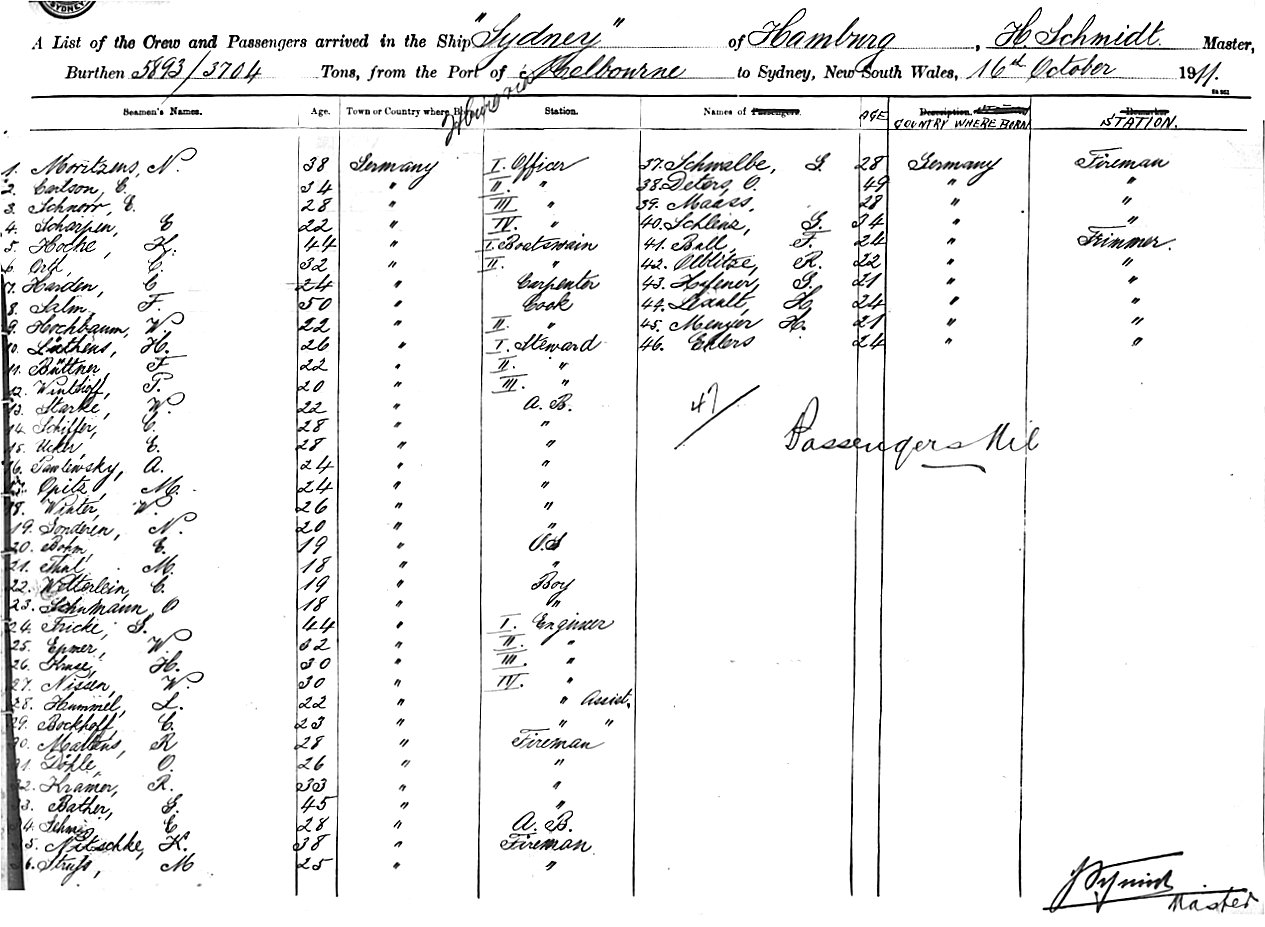 SYDNEY
A List of the Crew and Passengers arrived in the Ship "Sydney" of Hamburg, H. Schmidt. Master,
Burthen 5893/3704 Tons, from the Port of Melbourne to Sydney, New South Wales, 16th October 1911.
Seamen's Names. Age. Town or Country where Born Station. Names of Passengers. AGE Description. COUNTRY WHERE BORN Remarks STATION.
1. Moritzens, N. 38 Germany I. Officer 37. Schwalbe, G. 28 Germany Fireman
2. Carlson, C. 34 " II. " 38. Deters, O. 49 " "
3. Schnorr, E. 28 " III " 39. Maass, 28 " "
4. Scharpen, E 22 " IV. " 40. Schleus, G. 34 " "
5. Hocke, H. 44 " I. Boatswain 41. Ball, F. 24 " Trimmer.
6. C. 32 " II. " 42. R. 22 " "
7. Harden, C 24 " Carpenter 43. G. 21 " "
8. Salm, F. 50 " Cook 44. H 24 " "
9. Hochbaum, W. 22 " II. " 45. Menger H. 21 " "
10. Lüthens, H. 26 " I. Steward 46. Ehlers 24 " "
11. Büttner, F 22 " II. "
12. Winkhoff, T. 20 " III. "
13. Starke, W. 22 " A. B. 47/
14. Schiffer, C. 28 " " Passengers Nil
15. Ucker, E. 28 " "
16. Pawlewsky, A. 24 " "
17. Opitz, M. 24 " "
18. Winter, W. 26 " "
19. Sonderen, N. 20 " "
20. Bohm, E. 19 " O.S
21. Thal, M. 18 " "
22. Wetterlein, C. 19 " Boy
23. Schumann, O 18 " "
24. Fricke, G. 44 " I. Engineer
25. Epner, W. 32 " II. "
26. Kruse, H. 30 " III. "
27. Nissen, W. 30 " IV. "
28. Hummel, L. 22 " " Assist.
29. Bockhoff, C. 23 " " "
30. Martens, R 28 " Fireman
31. Döple, O. 26 " "
32. Kramer, R. 33 " "
33. Bather, G. 45 " "
34. E 28 " A. B.
35. Nitschke, K. 38 " Fireman
36. Struss, M 25 " "
Master